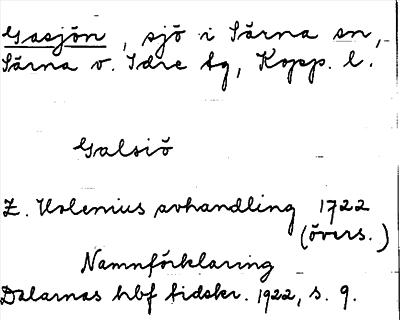 Gasjön, sjö i Särna sn,
Särna o. Idre tg, Kopp. l.
Galsiö
Z. Holenius avhandling 1722
(övers.)
Namnförklaring
Dalarnas hbf tidskr. 1922, s. 9.